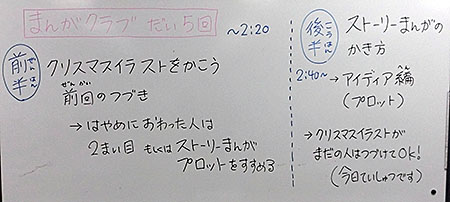 まんがクラブ だい5回
～2:20
前半
ぜんはん
クリスマスイラストをかこう
ぜんかい
前回のつづき
→はやめにおわった人は
2まい目 もしくはストーリーまんが
プロットをすすめる
後半
こうはん
ストーリーまんがの
かき方
2:40～→アイディア編
へん
(プロット)
→クリスマスイラストが
まだの人はつづけてOK!
(今日ていしゅつです)